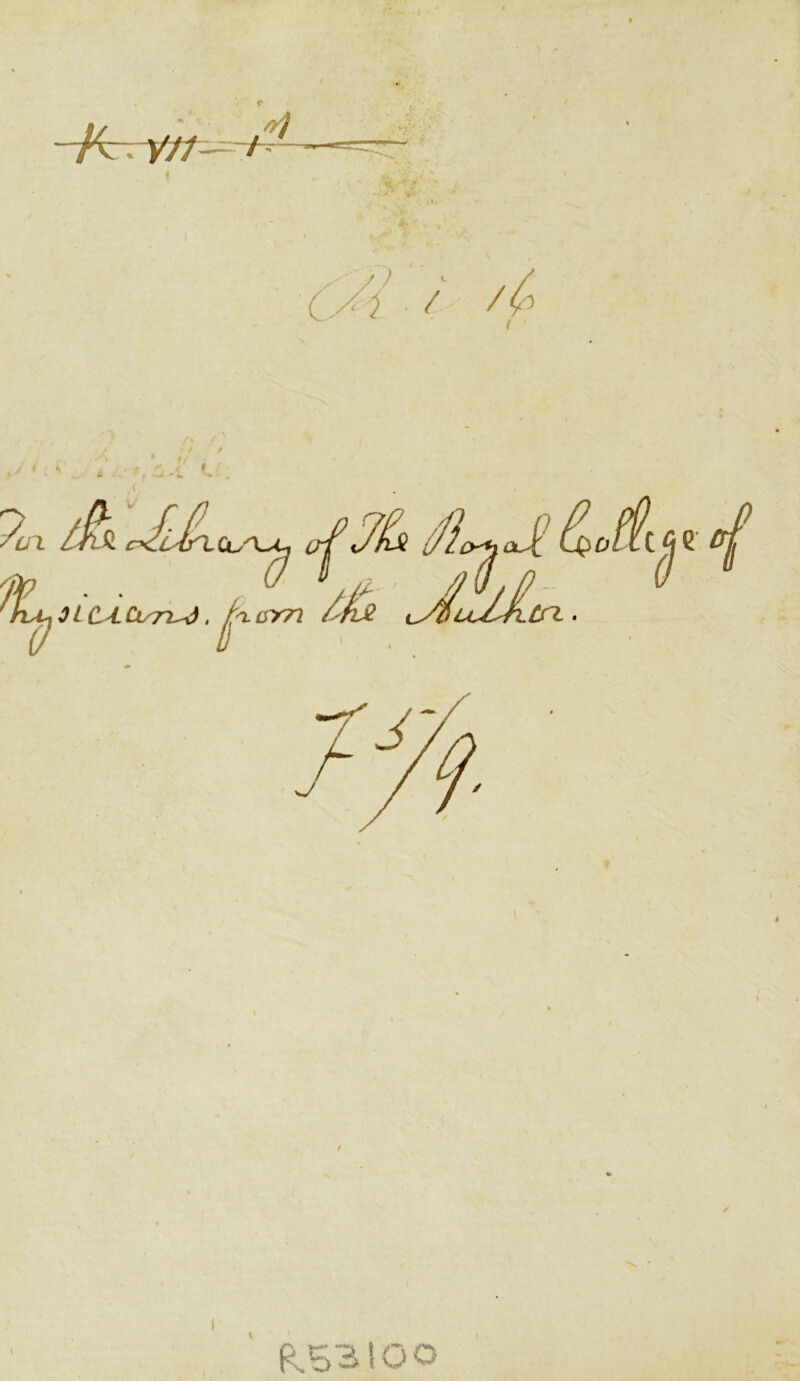 K. VII
For the Library of The Royal College of
Physicians, from the Author.
F 5/9.
R53100